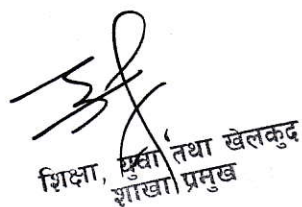 शिक्षा, युवा तथा खेलकुद
शाखा प्रमुख